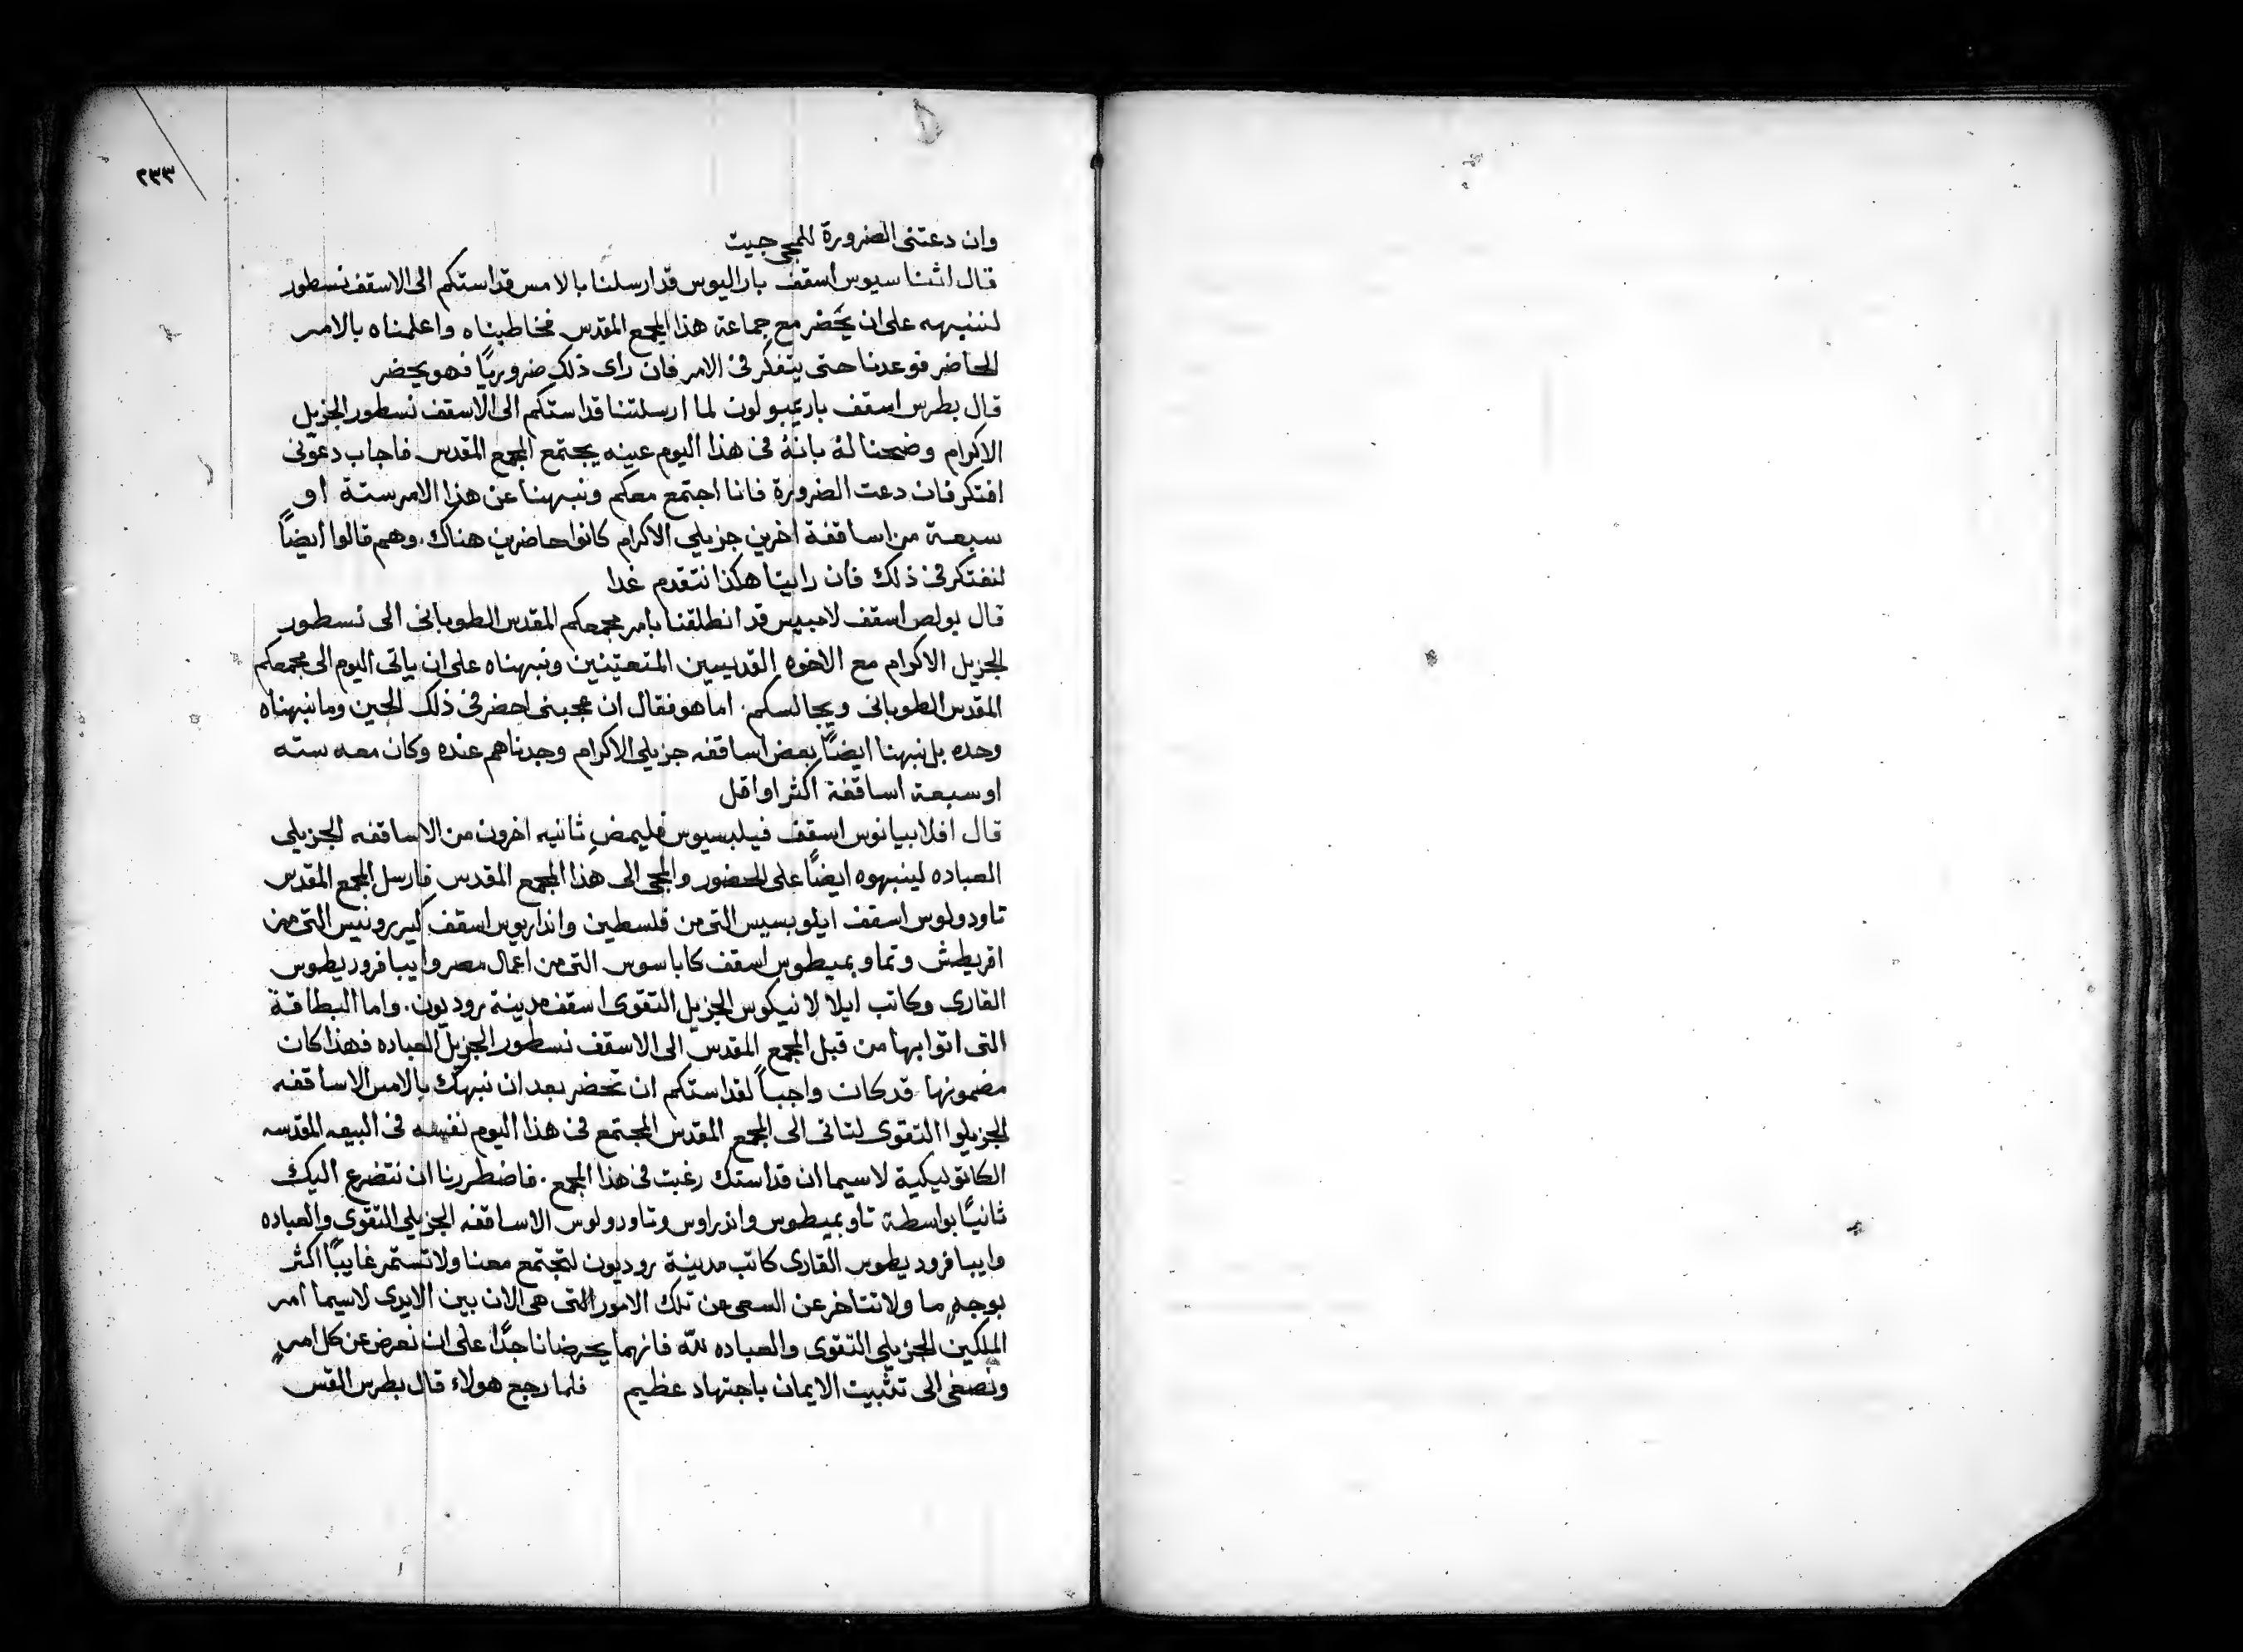 ٢٣٣
وان دعتنى الضرورة للمجى جيت
قال اثنا سيوس اسقف باراليوس قد ارسلنا بالامس قداستكم الى الاسقف نسطور
لننبهه على ان يحَضر مع جماعة هذا المجمع المقدس فخاطبناه واعلمناه بالامر
الحاضر فوعدنا حتى يتفكر فى الامر فان راى ذلك ضروريًا فهو يحضر
قال بطرس اسقف باريمبولون لما ارسلتنا قداستكم الى الاسقف نسطور الجزيل
الاكرام وضحنا لهُ بانهُ فى هذا اليوم عينه يجتمع المجمع المقدس فاجاب دعونى
افتكر فان دعت الضرورة فانا اجتمع معكم ونبهنا عن هذا الامر ستة او
سبعة من اساقفة اخرين جزيلي الاكرام كانوا حاضرين هناك. وهم قالوا ايضًا
لنفتكر فى ذلك فان راينا هكذا نتقدم غدا
قال بولص اسقف لامبيس قد انطلقنا بامر مجمعكم المقدس الطوباني الى نسطور
الجزيل الاكرام مع الاخوه القديسين المتعيّنين ونبهناه على ان ياتى اليوم الى مجمعكم
المقدس الطوبانى ويجالسكم. اما هو فقال ان عجبنى احضر فى ذلك الحين وما نبهناه
وحده بل نبهنا ايضًا بعض اساقفه جزيلي الاكرام وجدناهم عنده وكان معه سته
او سبعة اساقفة اكثر او اقل
قال افلابيانوس اسقف فيلبسيوس فليمضِ ثانيه اخرون من الاساقفه الجزيلي
العباده لينبهوه ايضًا على الحضور والمجى الى هذا المجمع المقدس فارسل المجمع المقدس
تاودولوس اسقف ايلوبسيس التى من فلسطين واندا ريوس اسقف كيررونيس التى من
اقريطش وتماوبميطوس اسقف كاباسوس التى من اعمال مصر وايبافروديطوس
القارى وكاتب ايلا لانيكوس الجزيل التقوى اسقف مدينة روديون. واما البطاقة
التى اتوا بها من قبل المجمع المقدس الى الاسقف نسطور الجزيل العباده فهذا كان
مضمونها قد كان واجباً لقداستكم ان تحضر بعد ان نبهك بالامس الاساقفه
الجزيلوا التقوى لتاتى الى المجمع المقدس المجتمع فى هذا اليوم نفسه فى البيعه المقدسه
الكاتوليكية لاسيما ان قداستك رغبت فى هذا المجمع. فاضطررنا ان نتضرع اليك
ثانيًا بواسطة تاوبميطوس واندراوس وتاودولوس الاساقفه الجزيلي التقوى والعباده
وايبافروديطوس القارى كاتب مدينة روديون لتجتمع معنا ولا تستمر غايبًا اكثر
بوجهٍ ما ولا تتاخر عن السعى من تلك الامور التى هى الان بين الايدى لاسيما امر
الملكين الجزيلي التقوى والعباده للّه فانهما يحرضانا جدًا على ان نعرض عن كل امرٍ
ونصغى الى تثبيت الايمان باجتهاد عظيم فلما رجع هولاء قال بطرس القس